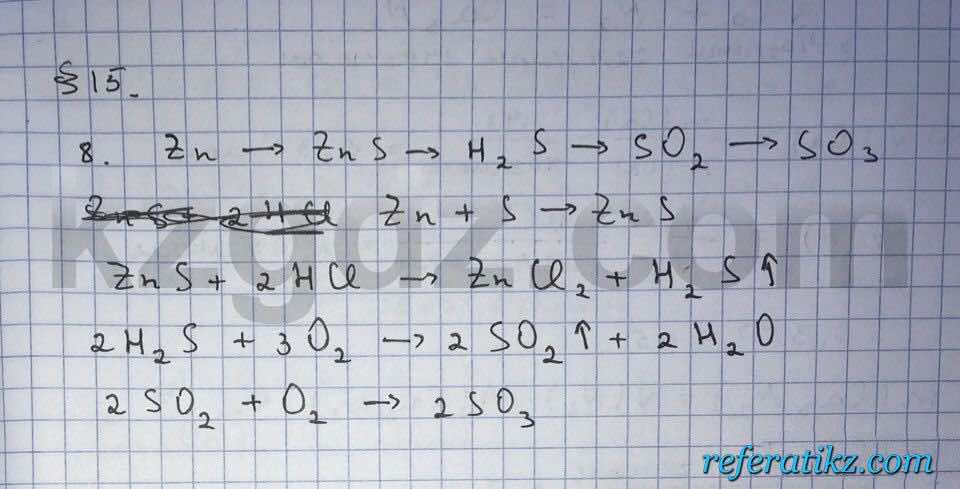 § 15.
8. Zn → ZnS → H₂S → SO₂ → SO₃
ZnS + 2HCl Zn + S → ZnS
ZnS + 2HCl → ZnCl₂ + H₂S↑
2H₂S + 3O₂ → 2SO₂↑ + 2H₂O
2SO₂ + O₂ → 2SO₃
kzgdz.com
referatikz.com